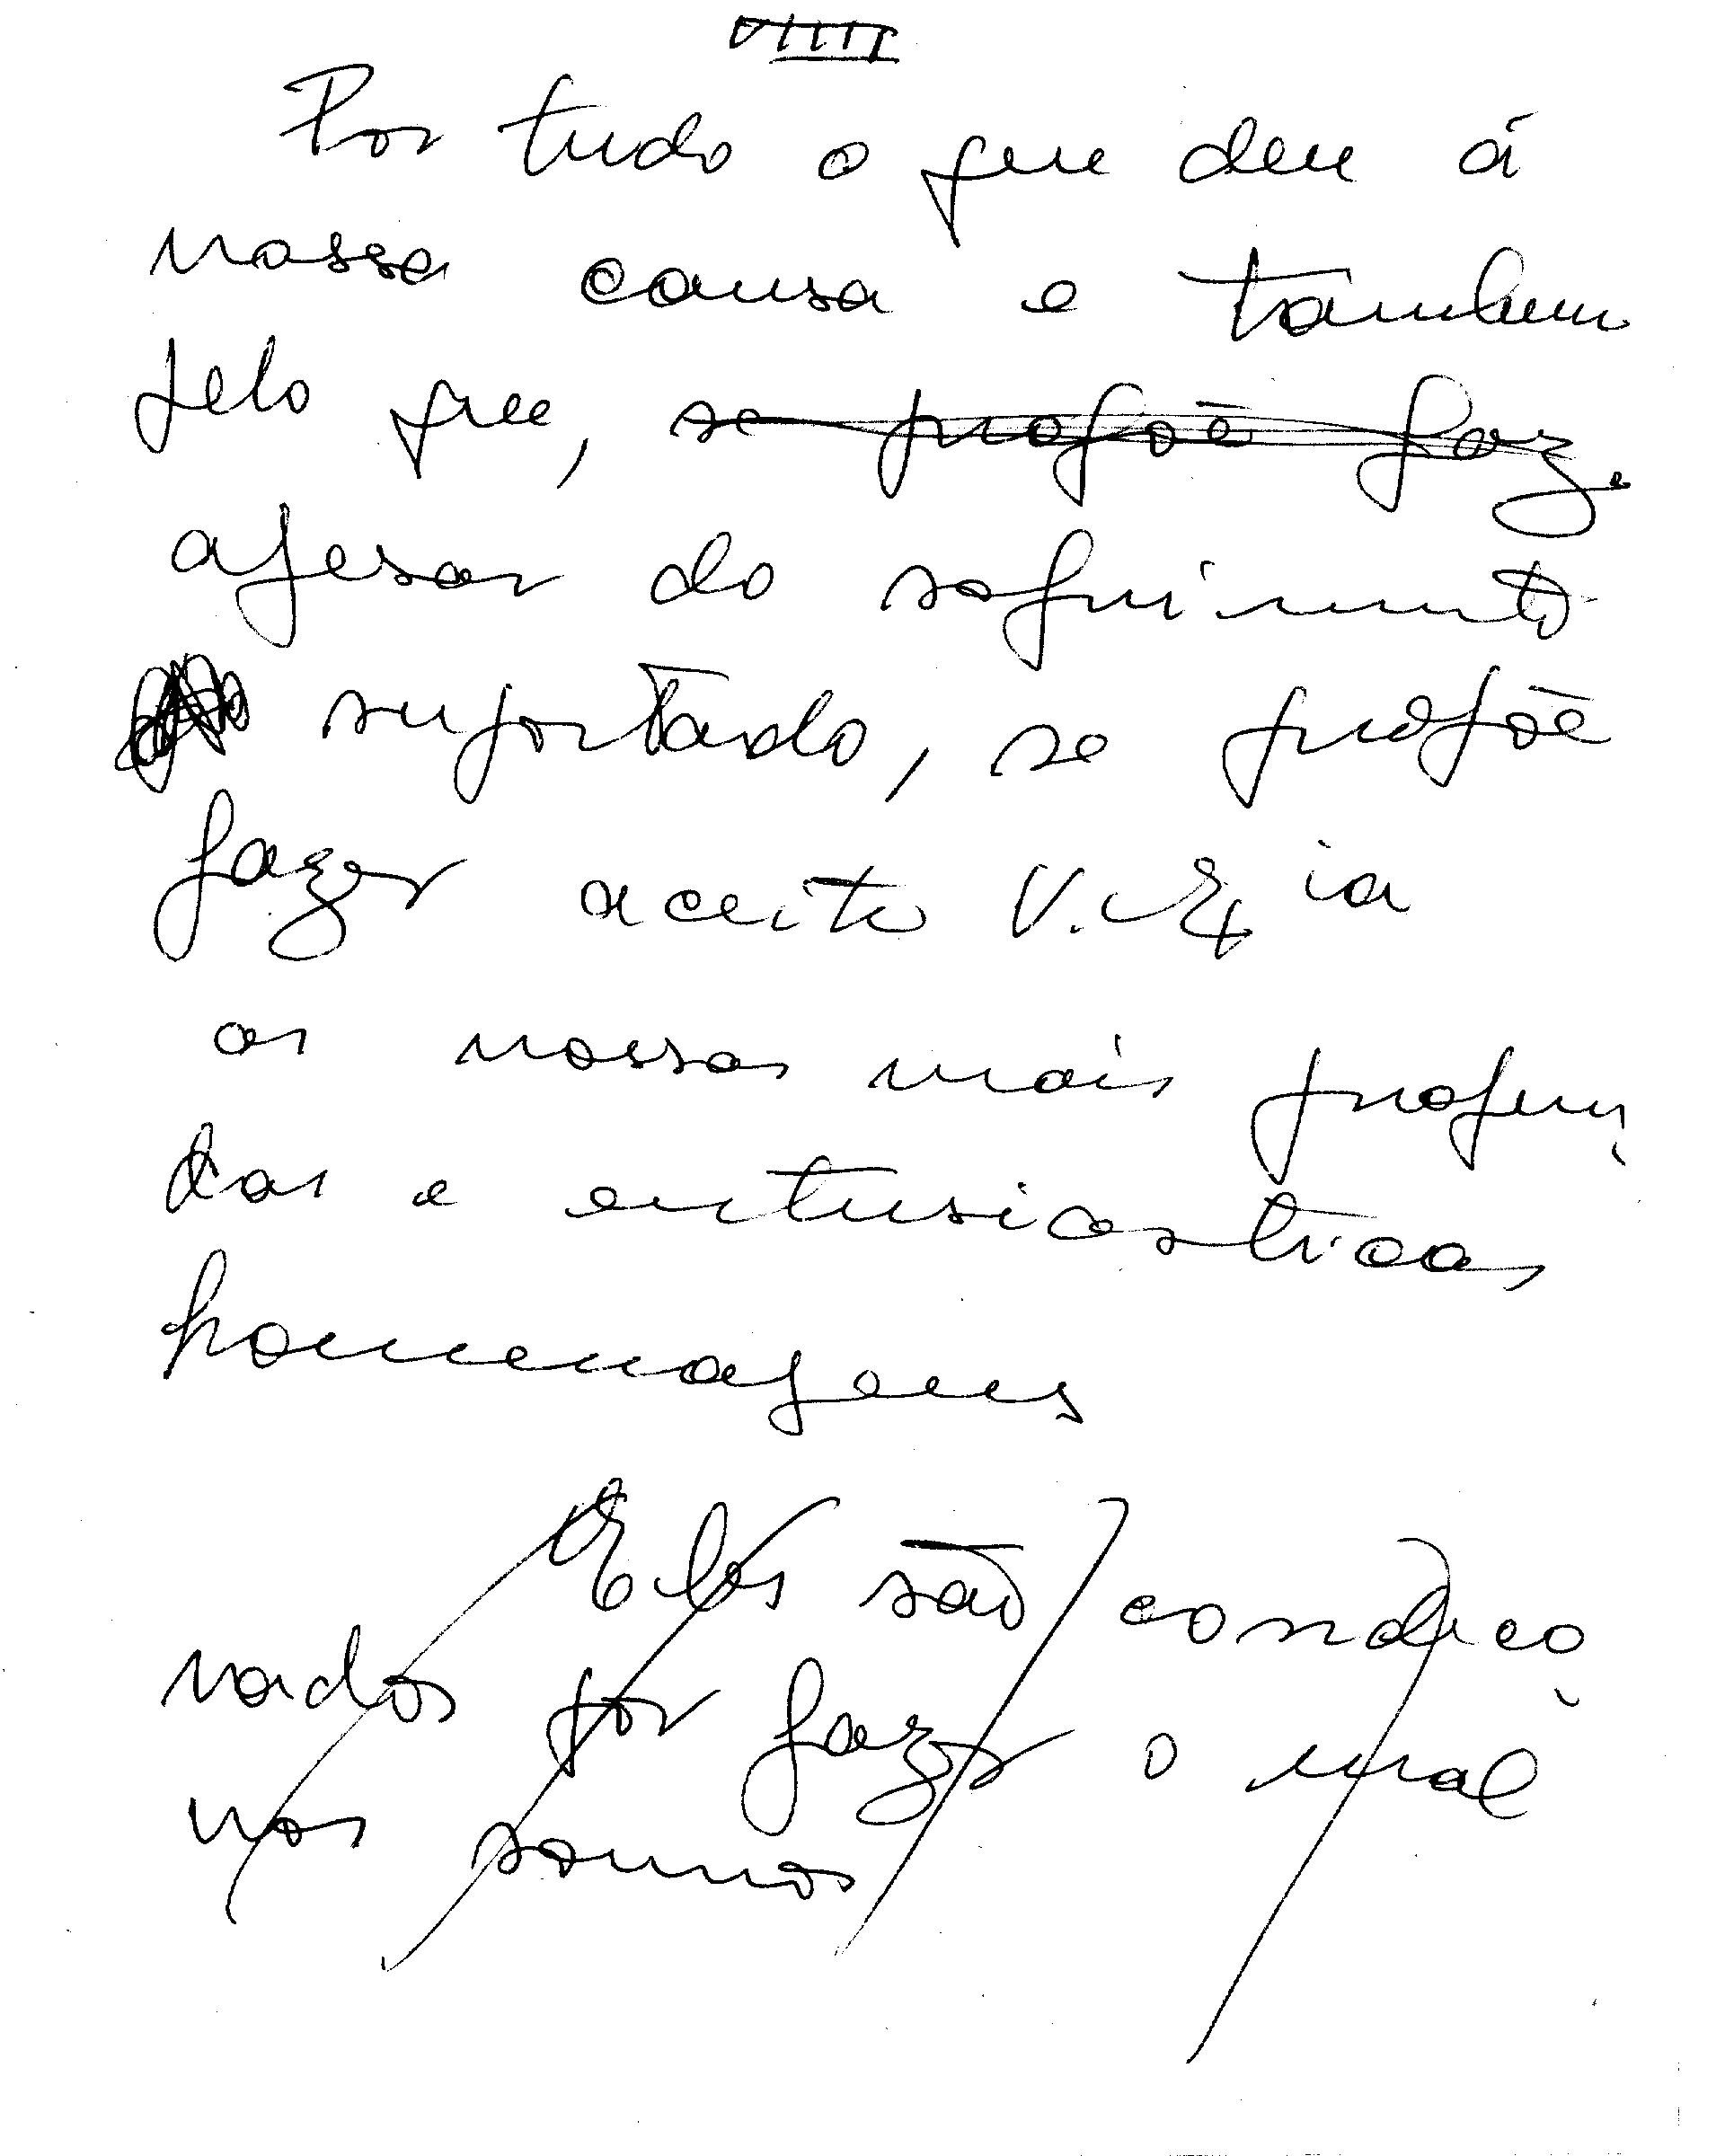 VIIII
Por tudo o que deu á
nossa causa e tambem
pelo que, se propõe faz
apesar do sofrimento
suportado, se propõe
fazer aceite V. Ex ia
as nossas mais profun
das e entusiasticas
homenagens
Elos são condico
nados por fazer o mal
nos somos